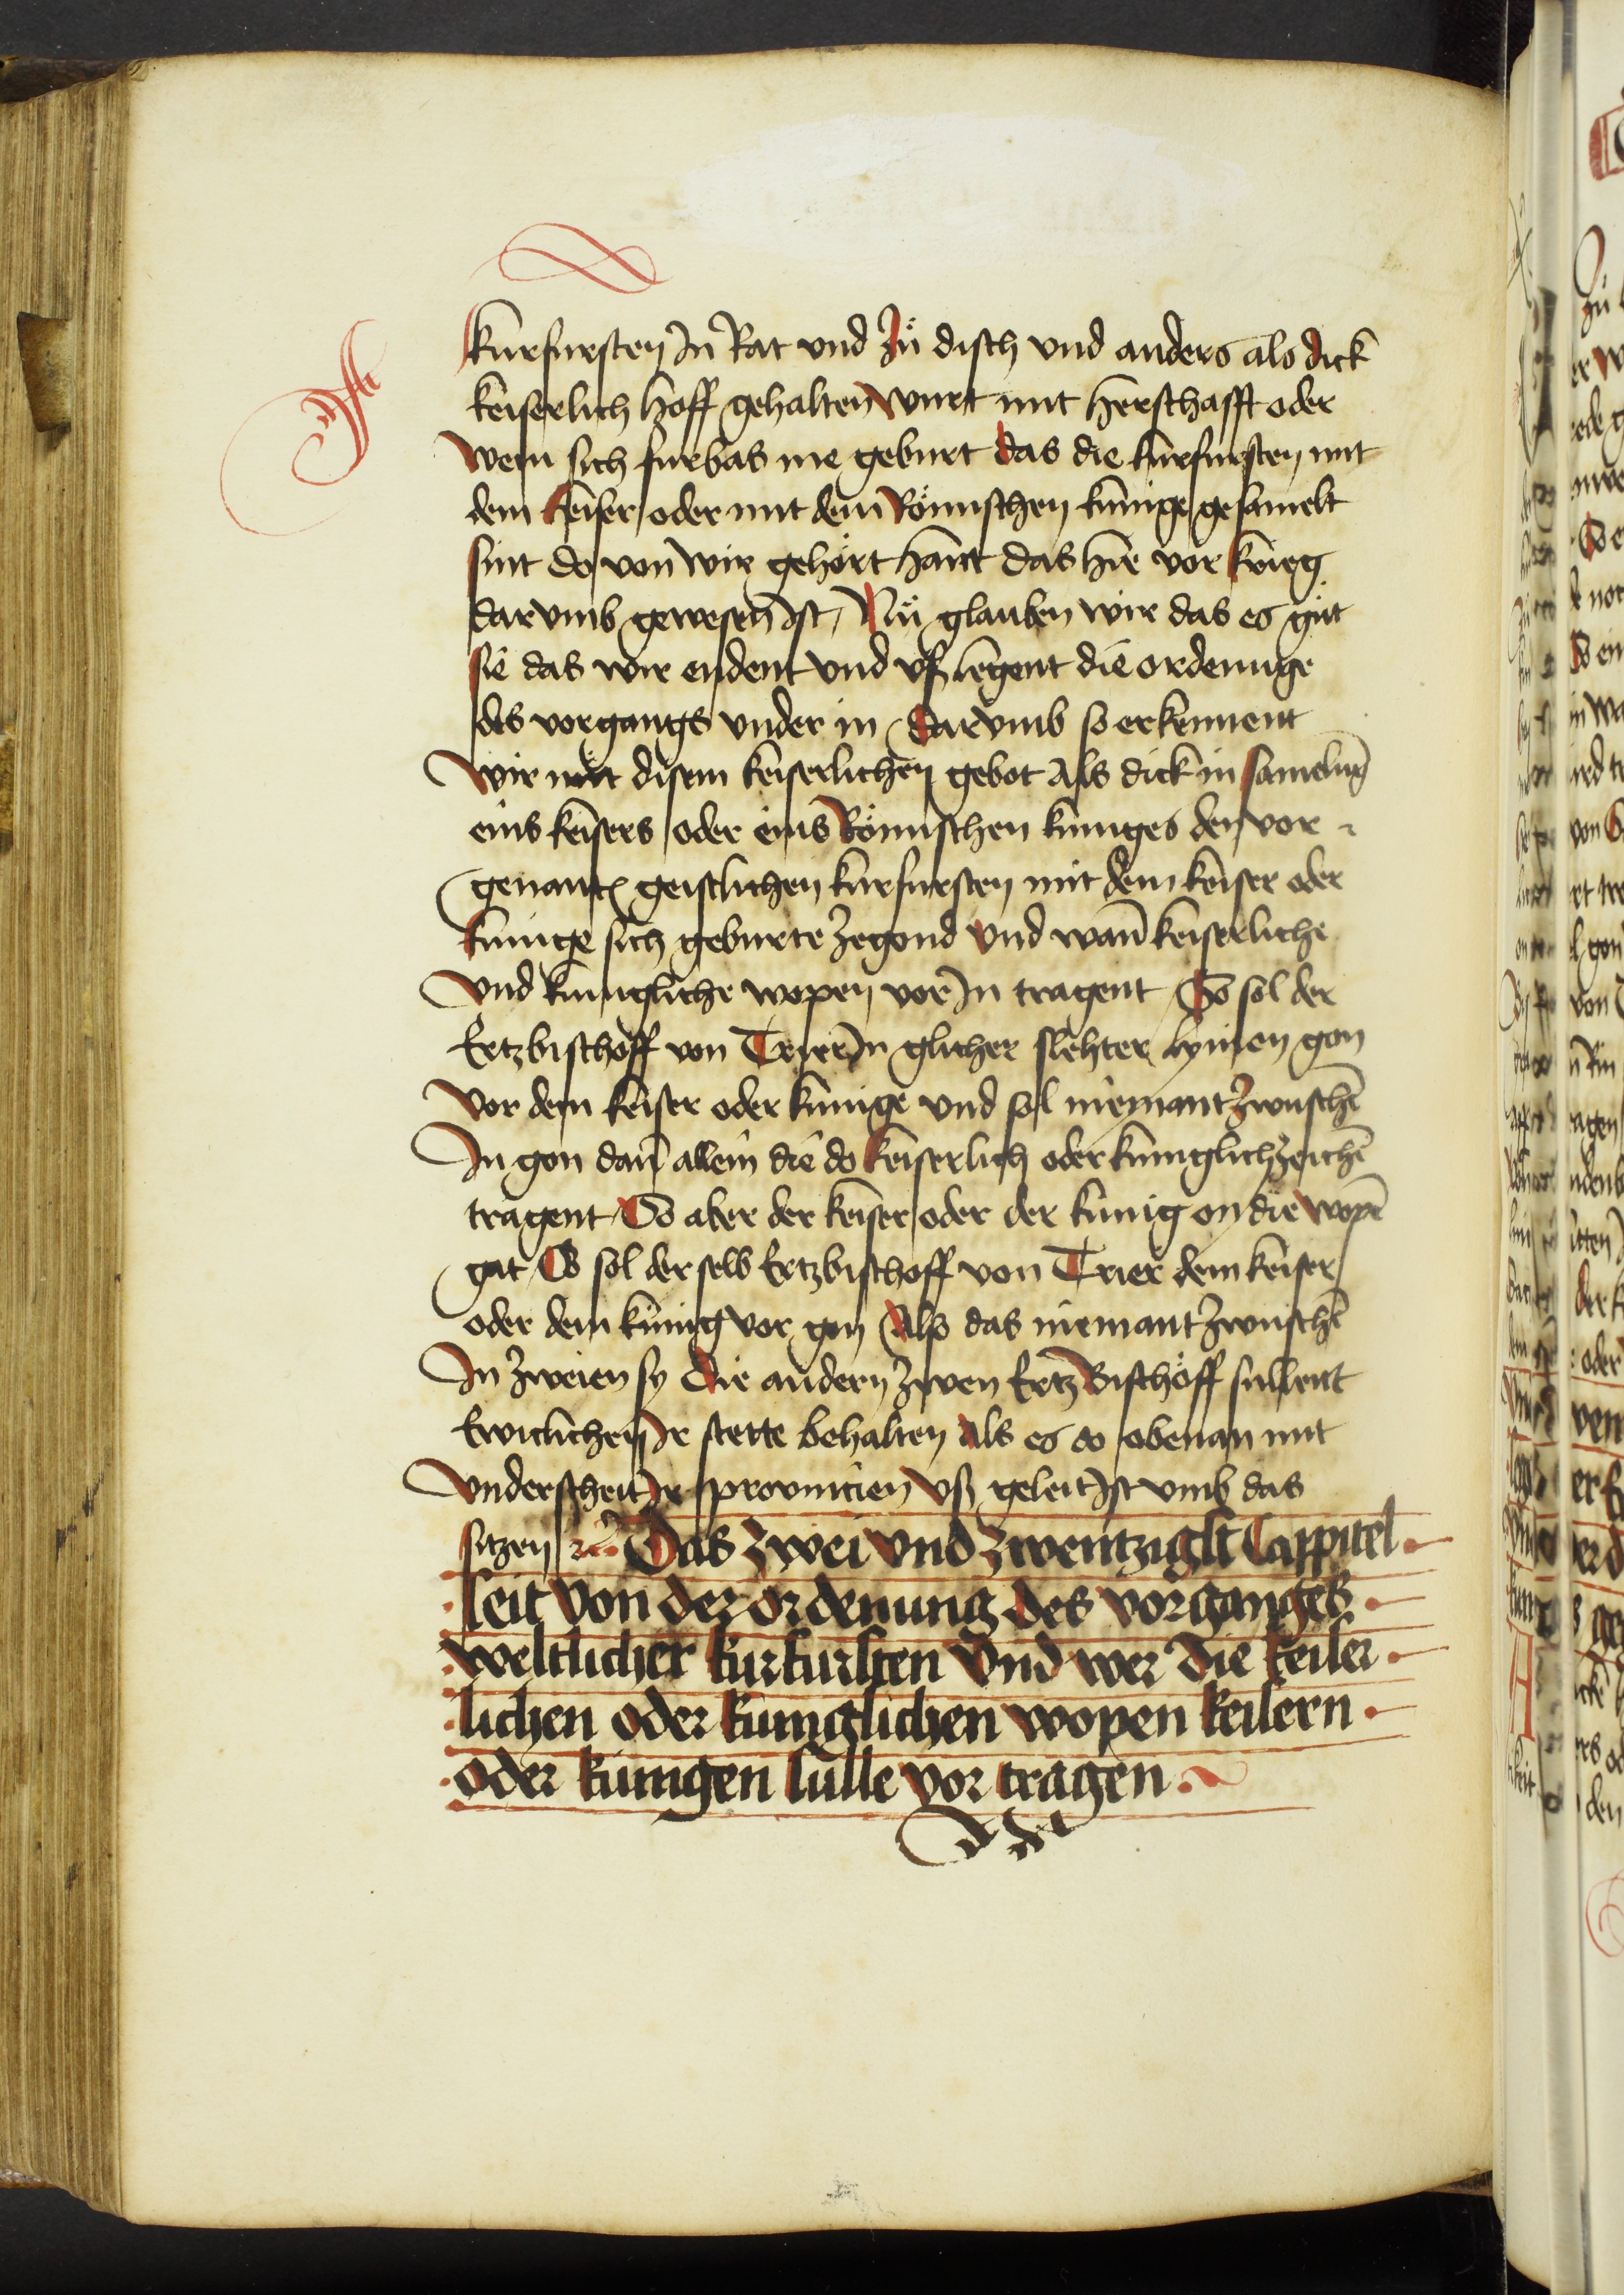 kurfursten In Rat vnd Zu̇ disch vnd anders als dick
keiserlich hoff gehalten wurt mit herschafft oder
wem sich furbas me geburt das die kurfursten mit
dem keiser oder mit dem Römischen kunige gesamelt
sint do von wir gehört hant das hie vor krieg
dar vmb gewesen Ist / Nu̇ glauben wir das es gu̇t
sie das wir endent vnd vß legent die ordenunge
des vorgangs vnder in / dar vmb so erkennent
wir mit disem keiserlichen gebot Als dick in samelūg
eins keisers oder eins Römischen kuniges den vor
genantē geistlichen kurfursten mit dem keiser oder
kunige sich geburte Zegond vnd wan̄ keiserliche
vnd kunigliche wopen vor In tragent / So sol der
Ertzbischoff von Trier In glicher slehter lynien gon
vor dem keiser oder kunige vnd sol niemant Zwuschē
In gon dan̄ allein die do keiserlich oder kuniglich Zeichē
tragent / So aber der keiser oder der kunig on die wopē
gat / So sol der selb Ertzbischoff von Trier dem keiser
oder dem kunig vor gon Also das niemant Zwuschē
In Zweien sy Die andern Zwen Ertz Bischöff sullent
Ewiclichen Ir stette behalten Als es do obenan mit
vnderscheit Ir prouincien vß geleit Ist vmb das
sitzen Das Zwei vnd Zwentzigst Cappitel
seit von der ordenung des vorganges
weltlicher kurfursten vnd wer die keiser
lichen oder kuniglichen wopen keisern
oder kunigen sulle vor tragen